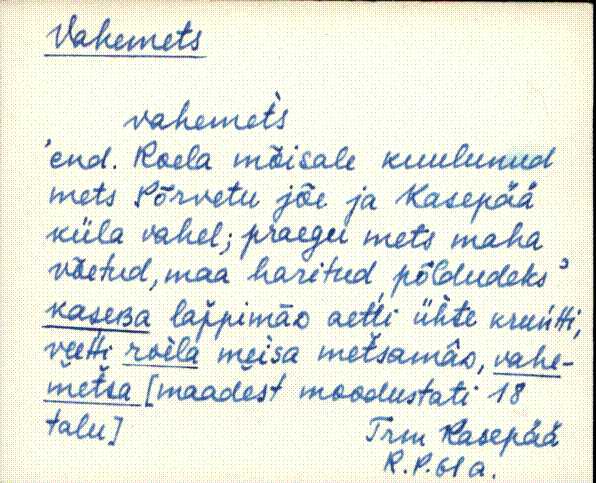 Vahemets
vahemet's
'end. Roela mõisale kuulunud
mets Põrvetu jõe ja Kasepää
küla vahel; praegu mets maha
võetud, maa haritud põldudeks'
kaseʙa lappimāᴅ aetti ühte kruńtti,
veetti roila meisa metsamāᴅ, vahe-
metsa [maadest moodustati 18
talu]
Trm Kasepää
R.P. 61 a.